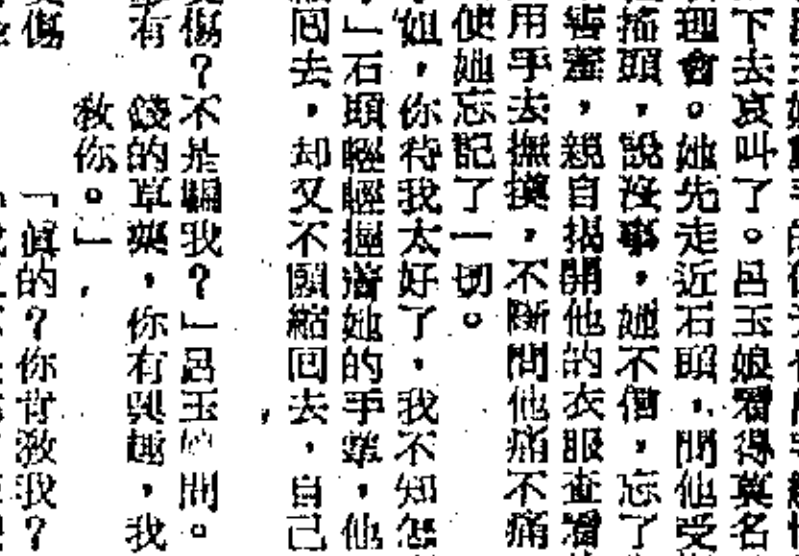 下去哀叫了。呂玉娘看得莫名
會。她先走近石頭,問他受
搖頭,說沒事,她不信,忘了
羞,親自揭開他的衣服查看
用手去撫摸,不斷問他痛不痛
使她忘記了一切。
姐,你待我太好了,我不知怎
」石頭輕輕握着她的手掌,他
回去,却又不願縮回去,自己
傷?不是騙我?」呂玉娘問。
有 錢的草藥,你有興趣,我
教你。」
傷 「真的?你肯教我?